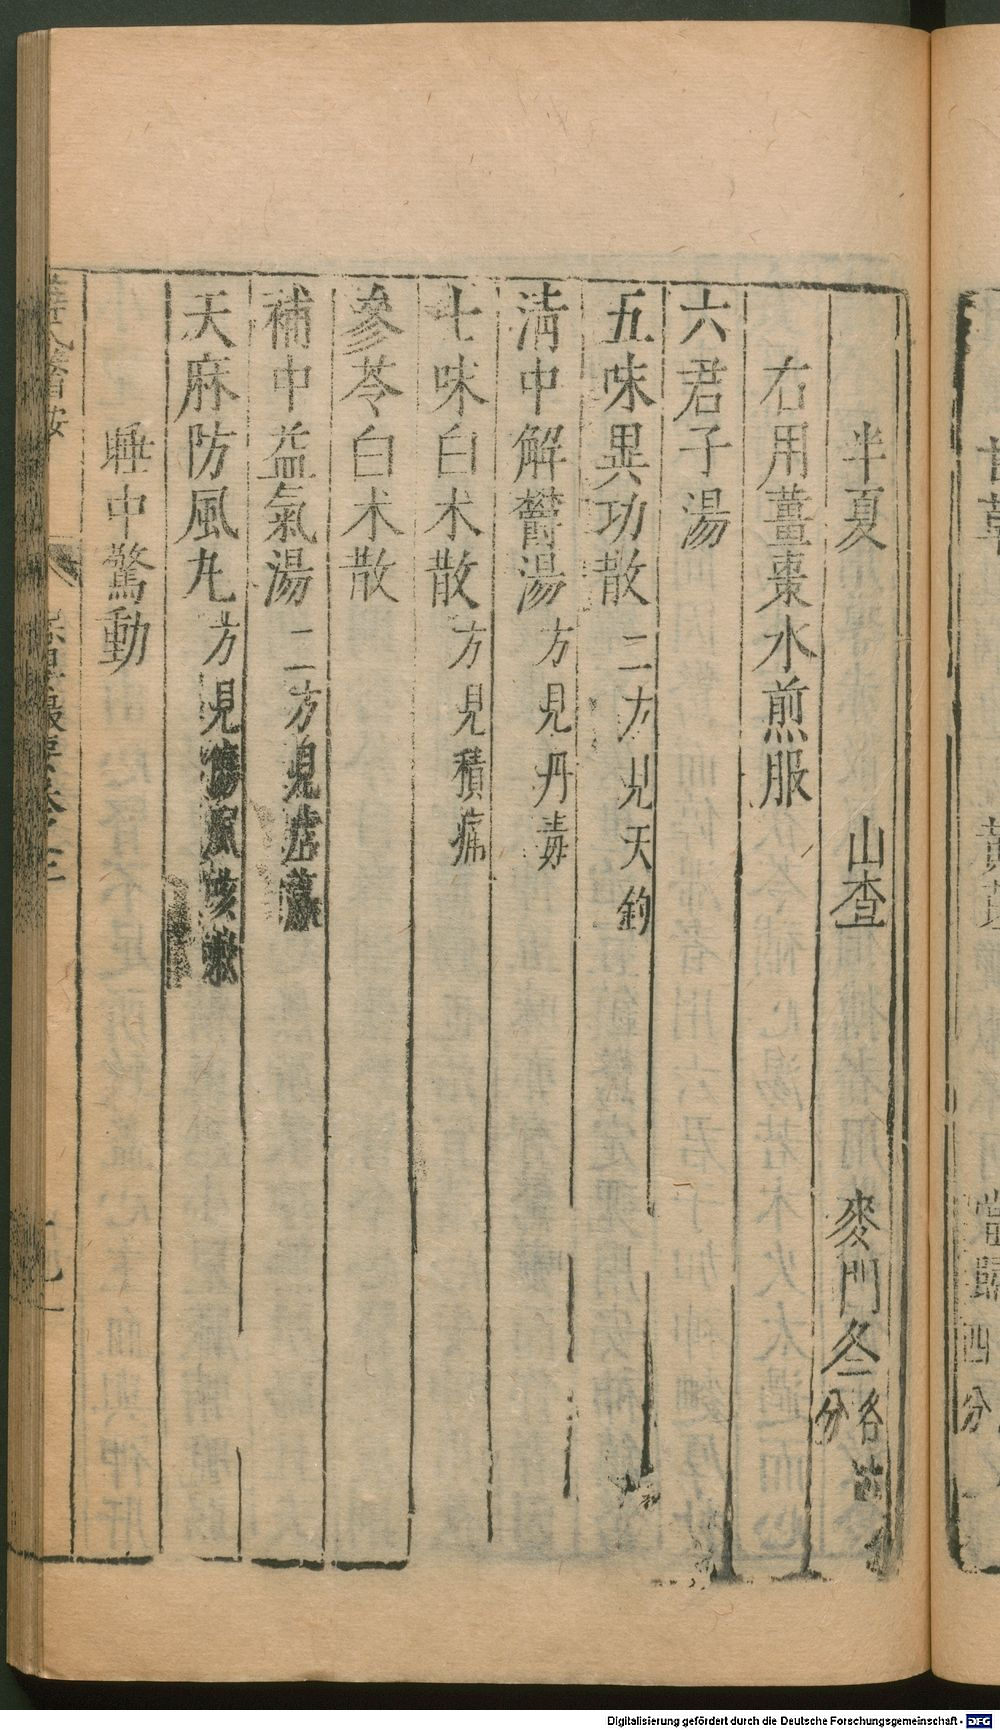 半夏 山查 麥門冬各
分
右用薑棗水煎服
六君子湯
五味異功散二方見天釣
清中解鬱湯方見丹毒
七味白术散方見積痛
參苓白术散
補中益氣湯二方見虛羸
天麻防風丸方見傷風咳嗽
睡中驚動
當歸四
分
Digitalisierung gefördert durch die Deutsche Forschungsgemeinschaft - DFG